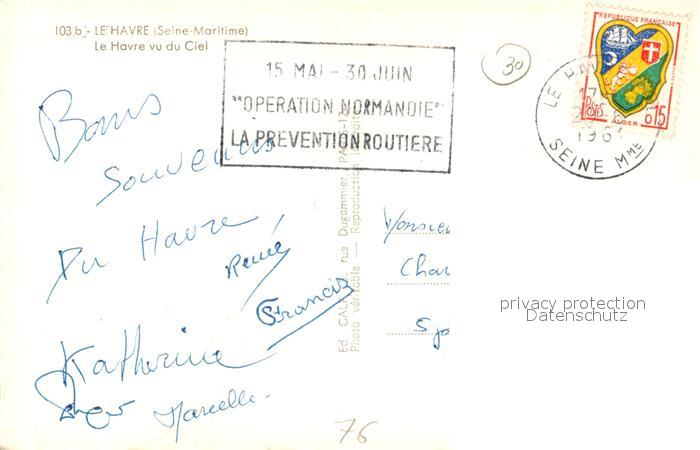 103 b - LE HAVRE (Seine-Maritime)
Le Havre vu du Ciel
15 MAI - 30 JUIN
"OPERATION NORMANDIE"
LA PREVENTION ROUTIERE
30
REPUBLIQUE FRANÇAISE
POSTES
ALGER
0,15
LE HAVRE
17
196
SEINE MME
Bons
Souvenirs
Du Havre
René
Francis
Katherine
Roger Marcelle
Ed. rue Dugommier, PA
Photo véritable — Reproduction interdite
Monsieu
Char
76
privacy protection
Datenschutz